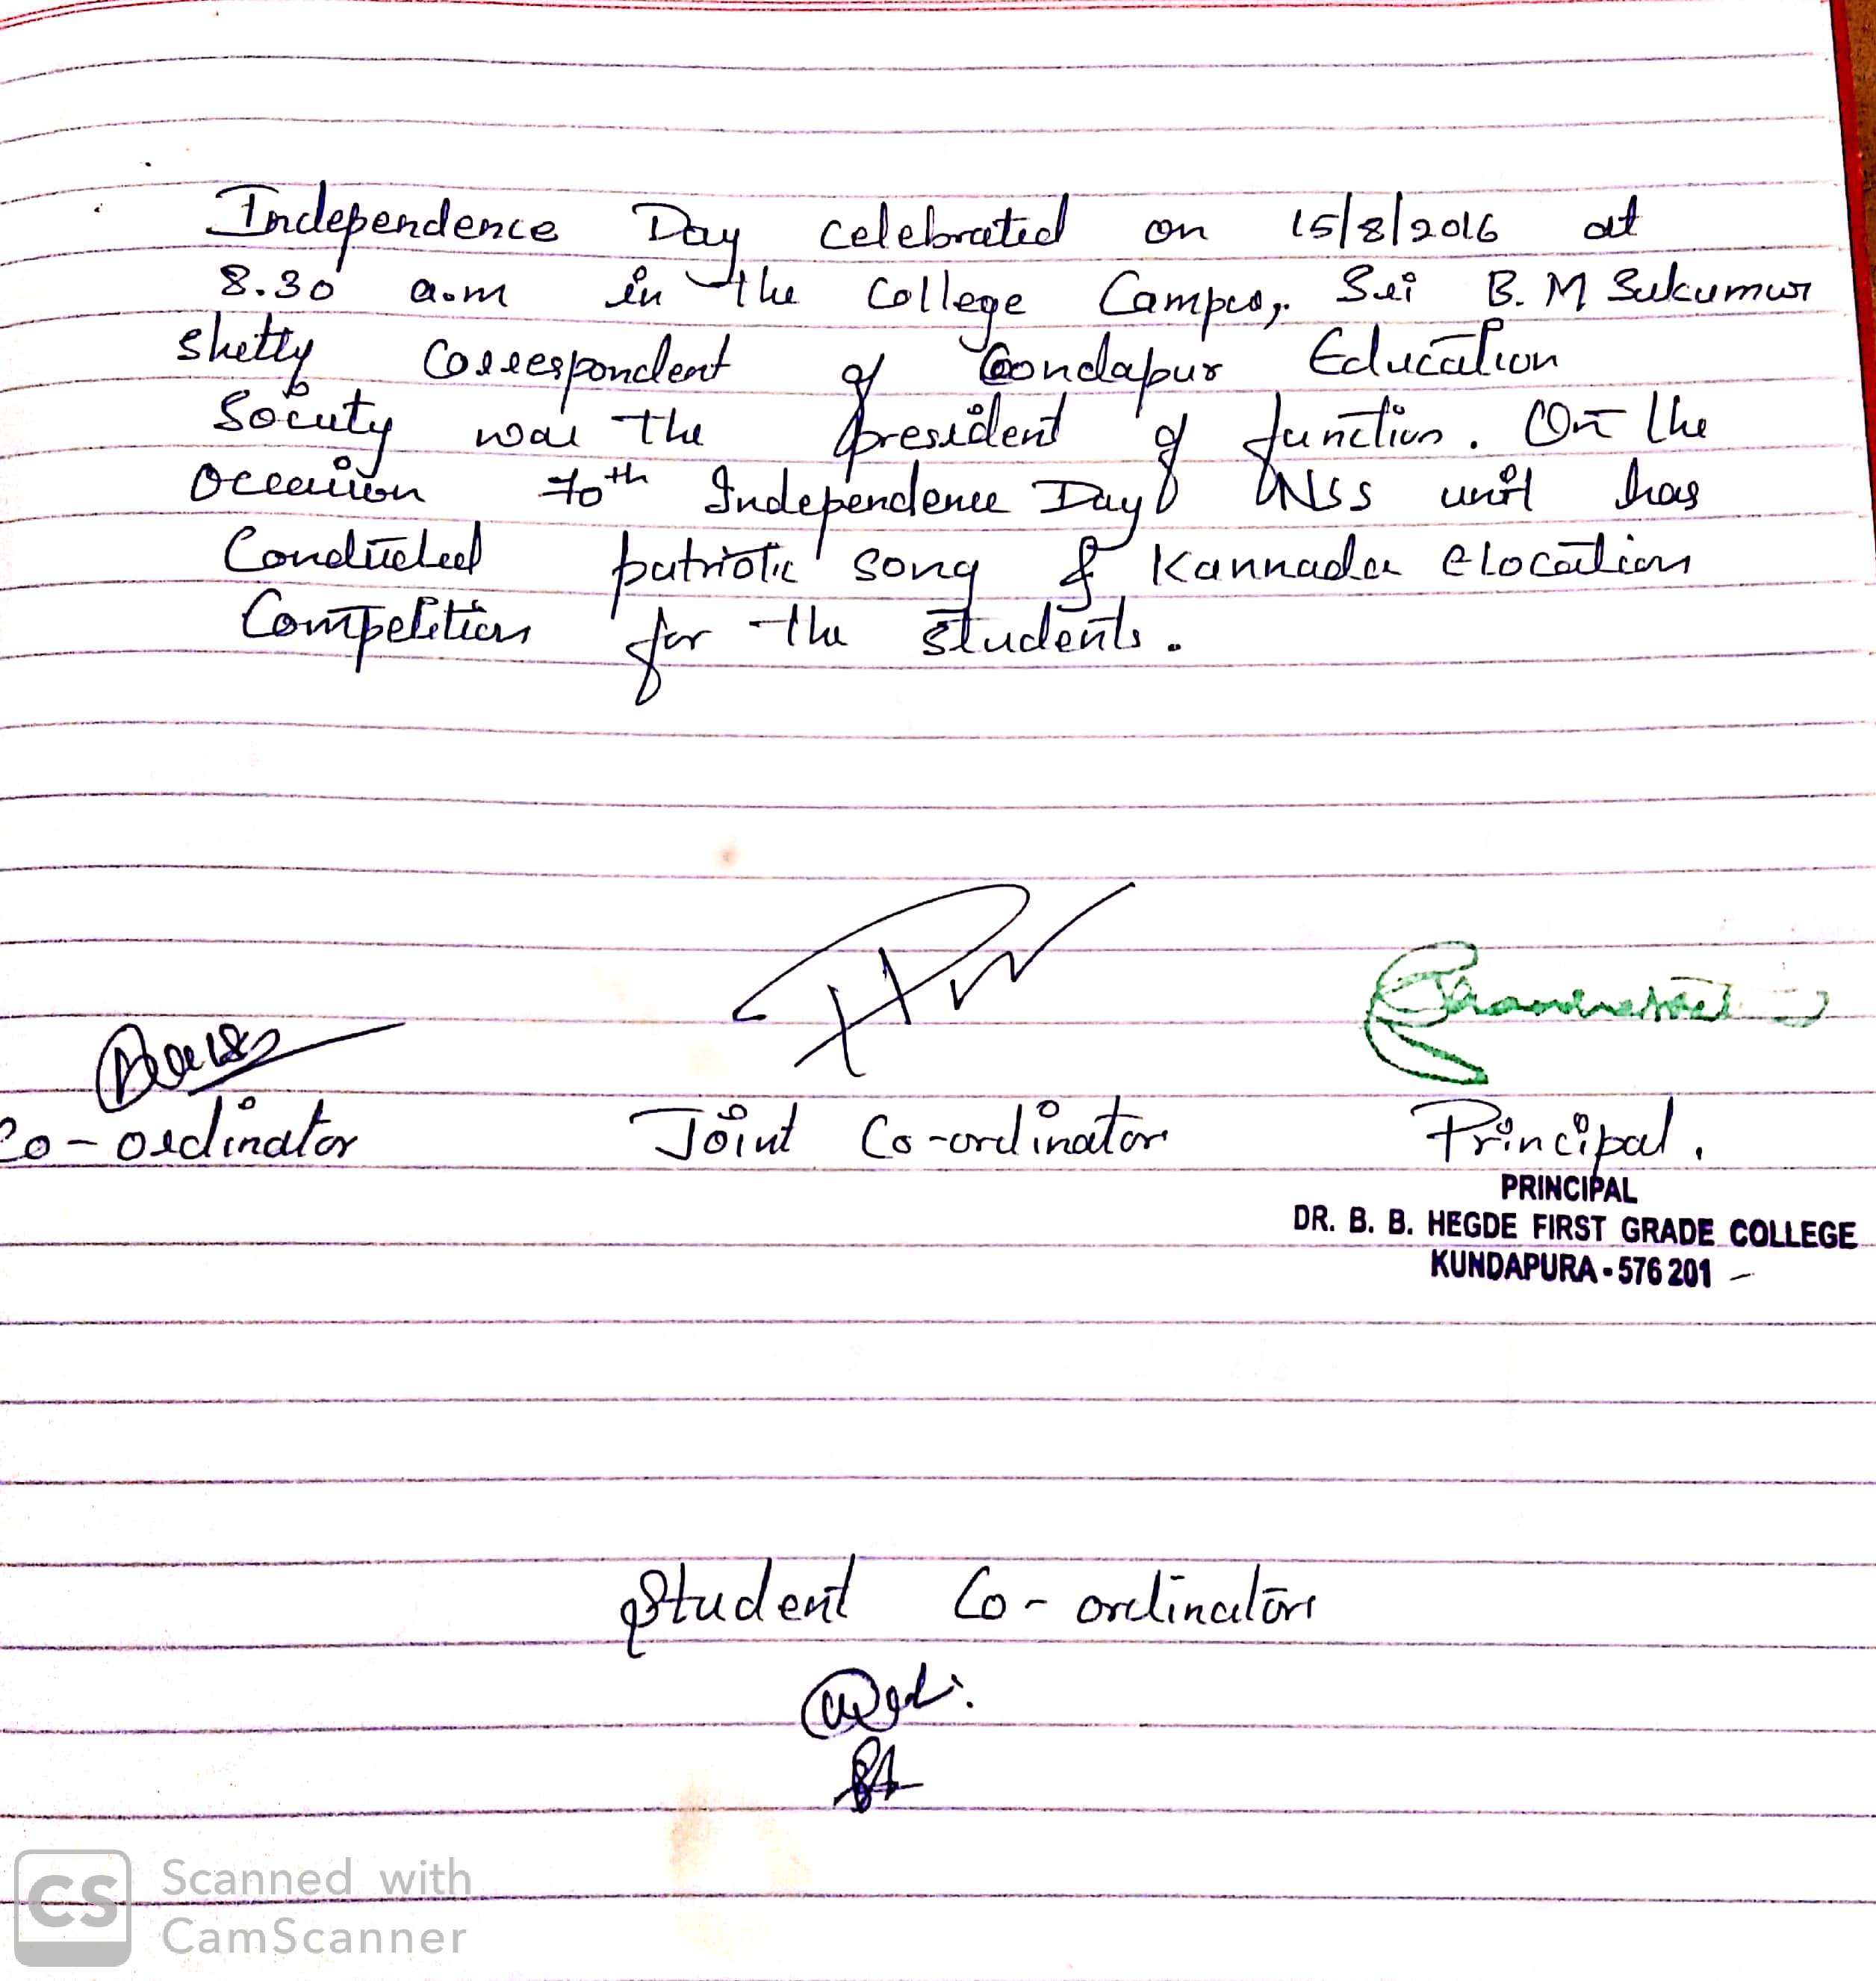 Independence Day celebrated on 15/8/2016 at
8.30 a.m in the College Campus, Sri B. M Sukumar
Shetty Correspondent of Coondapur Education
Society was the president of function. On the
Occasion 70th Independence Day NSS unit has
Conducted patriotic song & Kannada elocution
Competition for the students.
Co-ordinator Joint Co-ordinator Principal.
PRINCIPAL
DR. B. B. HEGDE FIRST GRADE COLLEGE
KUNDAPURA - 576 201
Student Co-ordinators
CS Scanned with
CamScanner